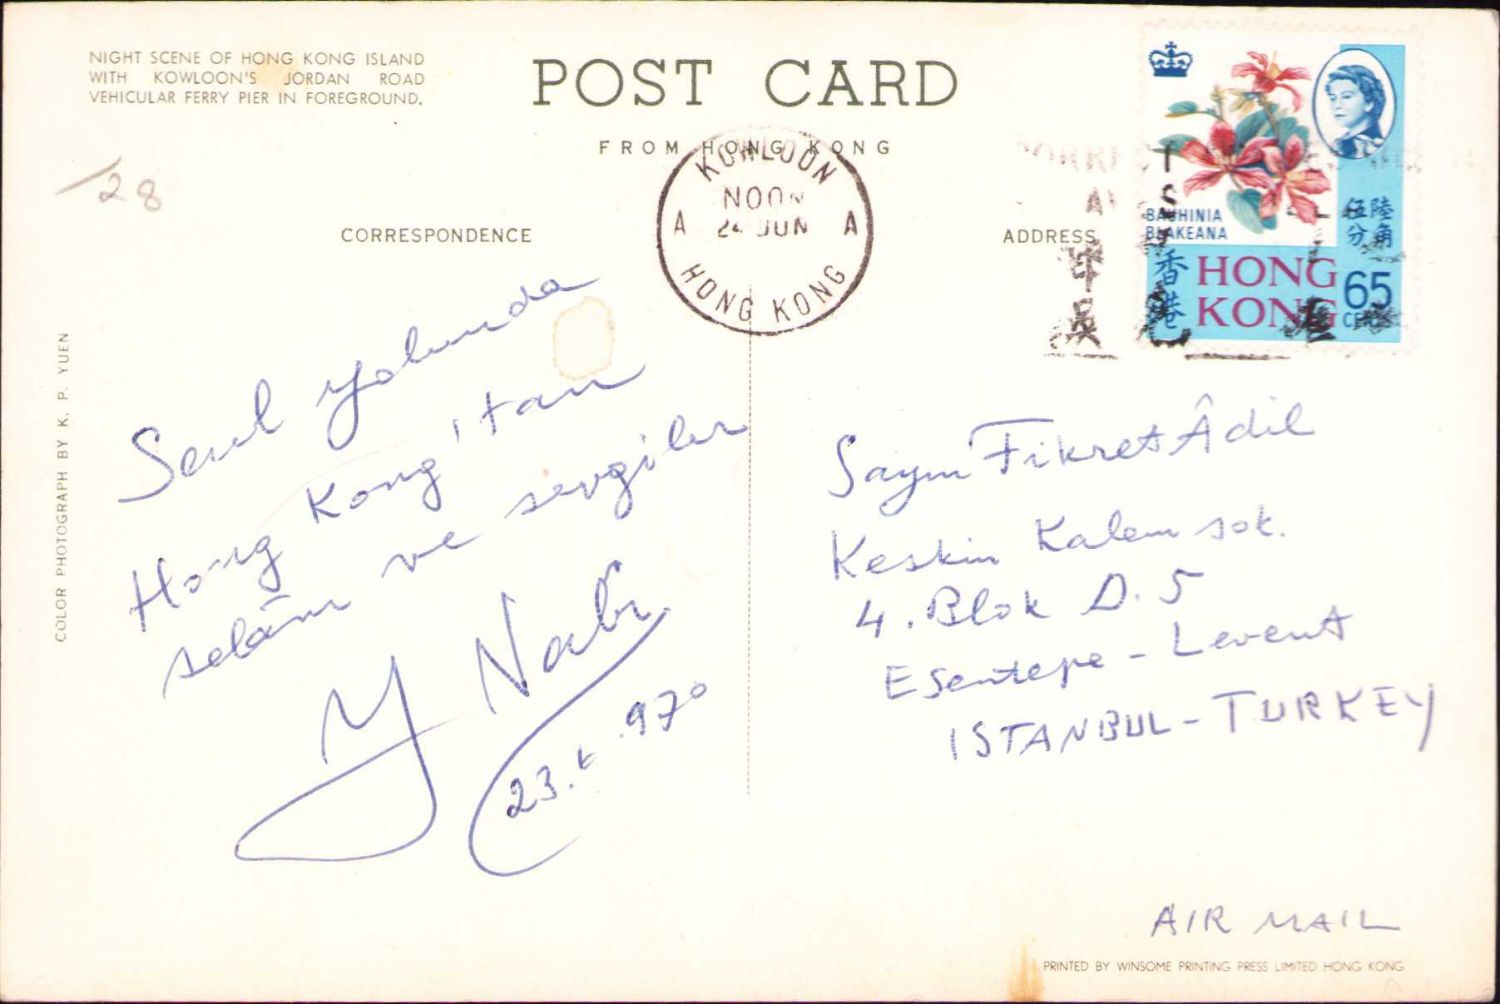 NIGHT SCENE OF HONG KONG ISLAND
WITH KOWLOON'S JORDAN ROAD
VEHICULAR FERRY PIER IN FOREGROUND.
POST CARD
FROM HONG KONG
28
CORRESPONDENCE
ADDRESS
KOWLOON
NOON
A 24 JUN A
HONG KONG
BAUHINIA
BLAKEANA
伍陸
分角
香港
HONG
KONG
65
CENTS
COLOR PHOTOGRAPH BY K. P. YUEN
Seul yolunda
Hong Kong'tan
selâm ve sevgiler
Y Nabi
23. .970
Sayın Fikret Âdil
Keskin Kalem sok.
4. Blok D. 5
Esentepe - Levent
ISTANBUL - TURKEY
AIR MAIL
PRINTED BY WINSOME PRINTING PRESS LIMITED HONG KONG